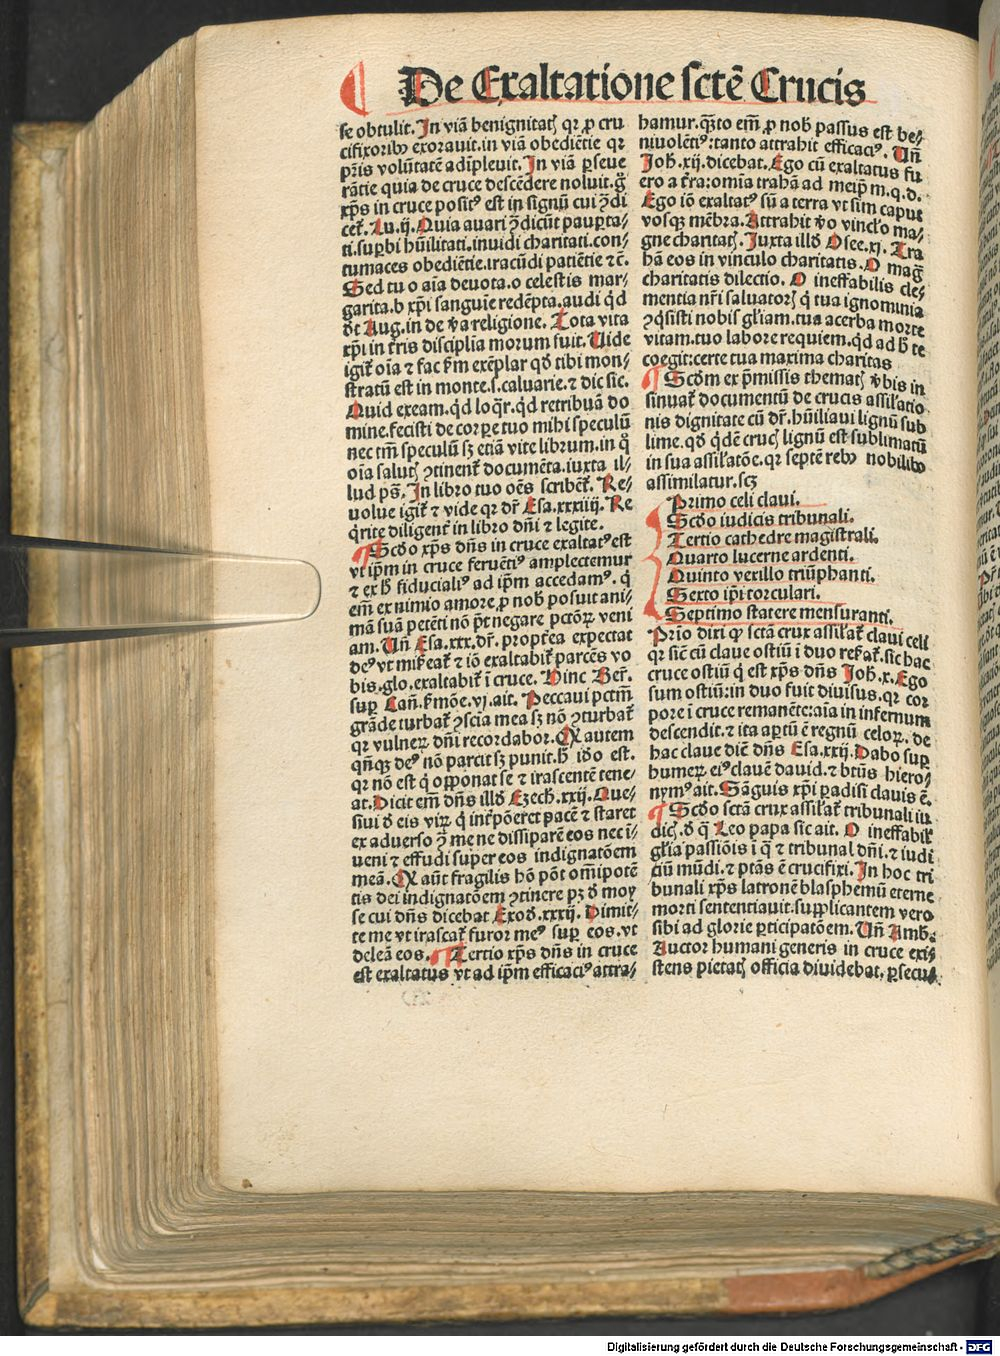 De Exaltatione sctē Crucis
se obtulit. In viā benignitatꝭ qꝛ ꝓ cru
cifixoribꝰ exorauit. in viā obediētie qꝛ
pr̄is volūtatē adīpleuit. In viā ꝑseue
rātie quia de cruce descēdere noluit. g̊
xp̄s in cruce positꝰ est in signū cui ꝯdi
cet᷑. Lu. ij. Quia auari ꝯdicūt pauꝑta⸗
ti. suꝑbi hūilitati. inuidi charitati. con⸗
tumaces obediētie. iracūdi patiētie ⁊ c̄.
Sed tu o aīa deuota. o celestis mar⸗
garita. h xp̄i sanguīe redēpta. audi qͥd
dt̄ Aug. in de v̄a religione. Tota vita
xp̄i in t̄ris disciplīa morum fuit. Vide
igit᷑ oīa ⁊ fac ẜm exēplar qd̄ tibi mon⸗
stratū est in monte. s. caluarie. ⁊ dic sic.
Quid exeam. qͥd loqr̄. qͥd retribuā do
mine. fecisti de corꝑe tuo mihi speculū
nec tm̄ speculū sꝫ etiā vite librum. in qͦ
oīa salutꝭ ꝯtinent᷑ documēta. iuxta il⸗
lud ps̄. In libro tuo oēs scribēt᷑. Re⸗
uolue igit᷑ ⁊ vide qꝛ dr̄ Esa. xxxiiij. Re
qͥrite diligent᷑ in libro dn̄i ⁊ legite.
¶ Scd̄o xp̄s dn̄s in cruce exaltatꝰ est
vt ip̄m in cruce feruētiꝰ amplectemur
⁊ ex h̄ fiducialiꝰ ad ip̄m accedamꝰ. qͥ
em̄ ex nimio amore ꝓ nob̄ posuit ani⸗
mā suā petēti nō pt̄ negare pctōꝝ veni
am. Vn̄ Esa. xxx. dr̄. propt̄ea expectat
deꝰ vt misereat᷑ ⁊ iō exaltabit᷑ parcēs vo
bis. glo. exaltabit᷑ ī cruce. Hinc Ber̄.
suꝑ Cañ. ẜmōe. vj. ait. Peccaui pctm̄
grāde turbat᷑ ꝯscīa mea sꝫ nō ꝯturbat᷑
qꝛ vulneꝝ dn̄i recordabor. Qn̄ autem
qn̄qꝫ deꝰ nō parcit sꝫ punit. h̄ ideo est.
qꝛ nō est qͥ opponat se ⁊ irascentē tene⸗
at. Dicit em̄ dn̄s illd̄ Ezech. xxij. Que⸗
siui d̄ eis viꝝ qͥ int᷑pōeret pacē ⁊ staret
ex aduerso ꝯ̄ me ne dissiparē eos nec ī⸗
ueni ⁊ effudi super eos indignatōem
meā. Qn̄ aūt fragilis hō pōt om̄ipotē
tis dei indignatōem ꝯtinere pꝫ d̄ moy
se cui dn̄s dicebat Exod̄. xxxij. Dimit⸗
te me vt irascat᷑ furor meꝰ suꝑ eos. vt
deleā eos. ¶ Tertio xp̄s dn̄s in cruce
est exaltatus vt ad ip̄m efficaciꝰ attra⸗
hamur. qͣto em̄ ꝓ nob̄ passus est be⸗
niuolētiꝰ: tanto attrahit efficaciꝰ. Vn̄
Joh. xij. dicebat. Ego cū exaltatus fu
ero a t̄ra: omīa trahā ad meip̄m. q. d.
Ego iō exaltatꝰ sū a terra vt sim caput
vosqꝫ mēbra. Attrahit v̄o vinclo ma⸗
gne charitatꝭ. Juxta illd̄ Osee. xj. Tra
hā eos in vinculo charitatis. O mag̃
charitatis dilectio. O ineffabilis cle⸗
mentia nr̄i saluatorꝭ qͥ tua ignominia
ꝯqͥsisti nobis gl̄iam. tua acerba morte
vitam. tuo labore requiem. qͥd ad h̄ te
coegit: certe tua maxima charitas
¶ Scd̄m ex p̄missis thematꝭ v̄bis in
sinuat᷑ documentū de crucis assil̄atio
nis dignitate cū dr̄. hūiliaui lignū sub
lime. qd̄ qͥdē crucꝭ lignū est sublimatū
in sua assil̄atōe. qꝛ septē rebꝰ nobilibꝰ
assimilatur. scꝫ
Primo celi claui.
Scd̄o iudicis tribunali.
Tertio cathedre magistrali.
Quarto lucerne ardenti.
Quinto vexillo triūphanti.
Sexto ip̄i torculari.
Septimo statere mensuranti.
Prīo dixi ꝙ sctā crux assil̄at᷑ claui celi
qꝛ sic̄ cū claue ostiū ī duo reẜat᷑. sic hac
cruce ostiū qͥ est xp̄s dn̄s Joh̄. x. Ego
sum ostiū: in duo fuit diuisus. qꝛ cor
pore ī cruce remanēte: aīa in infernum
descendit. ⁊ ita aꝑtū ē regnū celoꝝ. de
hac claue dic̄ dn̄s Esa. xxij. Dabo suꝑ
humeꝝ eiꝰ clauē dauid. ⁊ btūs hiero⸗
nymꝰ ait. Sāguis xp̄i ꝑadisi clauis ē.
¶ Scd̄o sctā crux assil̄at᷑ tribunali iu
dicꝭ. d̄ q̄ Leo papa sic ait. O ineffabil̓
gl̄ia passiōis ī q̄ ⁊ tribunal dn̄i. ⁊ iudi
ciū mūdi. ⁊ ptās ē crucifixi. In hoc tri
bunali xp̄s latronē blasphemū eterne
morti sententiauit. supplicantem vero
sibi ad glorie ꝑticipatōem. Vn̄ Amb.
Auctor humani generis in cruce exi⸗
stens pietatꝭ officia diuidebat, ꝑsecu⸗
Digitalisierung gefördert durch die Deutsche Forschungsgemeinschaft - DFG